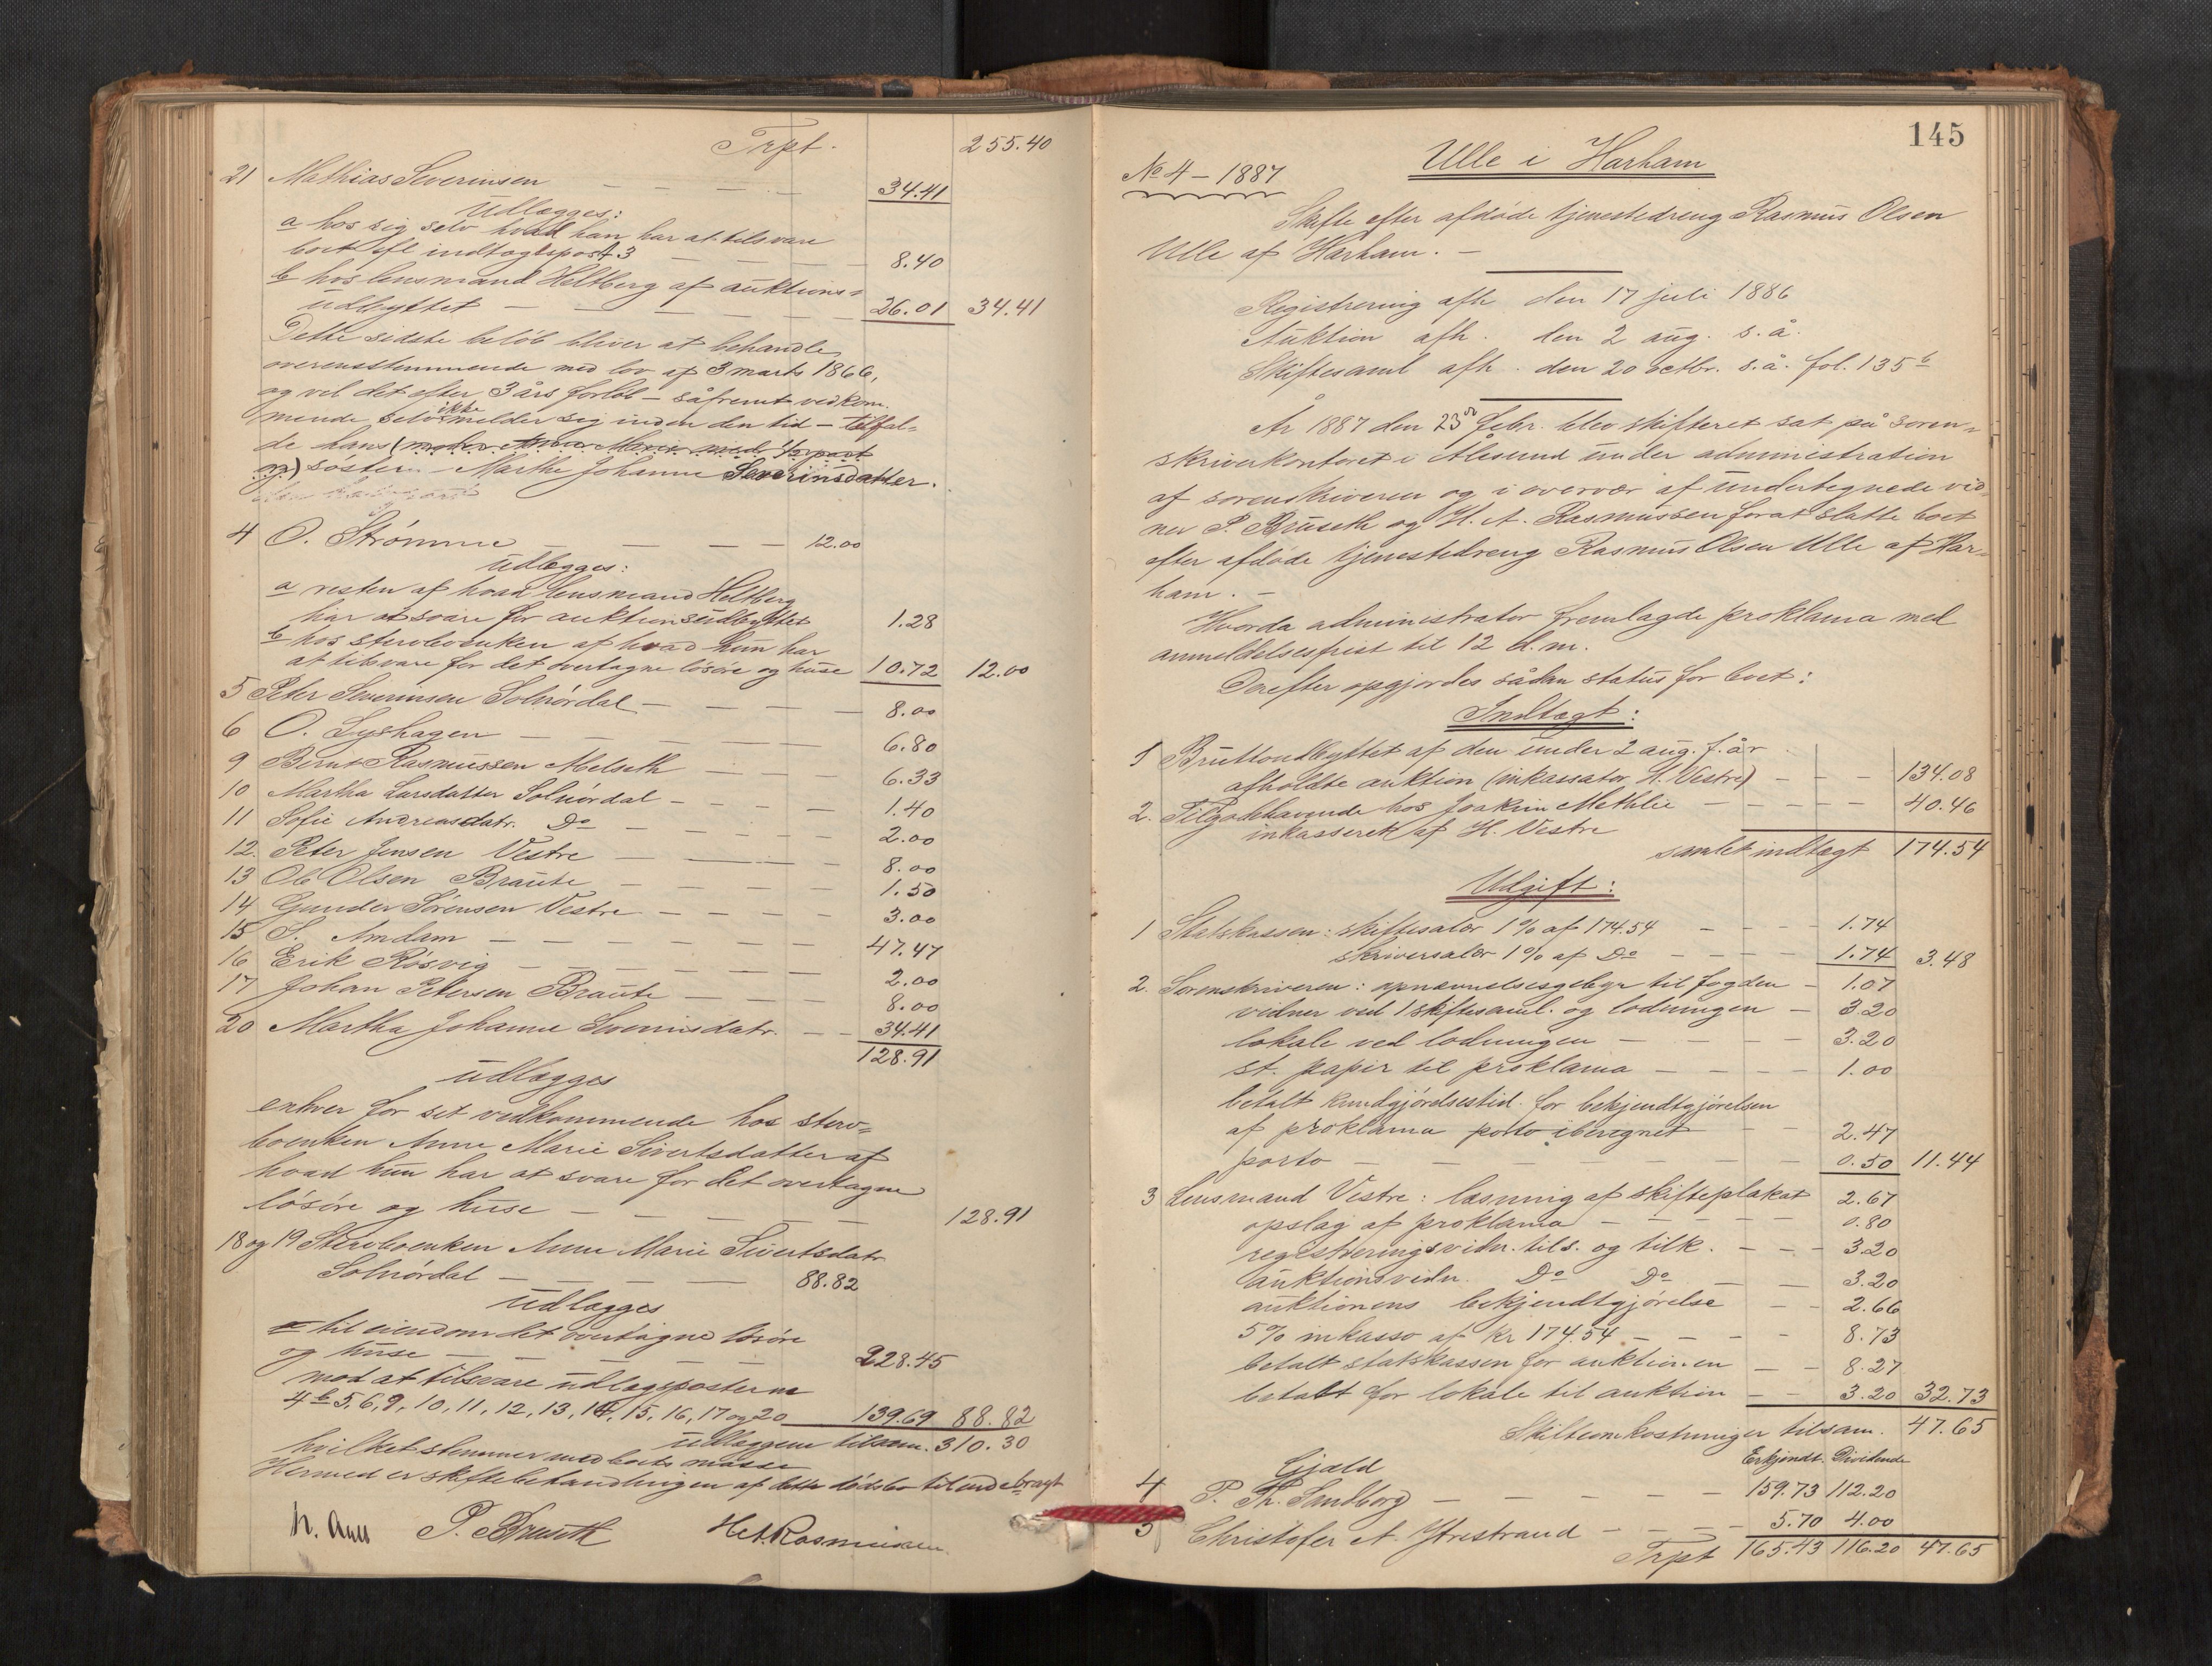 Trpt. 255.40
21 Mathias Severinsen — — — — 34.41
Udlægges:
a hos sig selv hvad han har at tilsvare
boet efl indtægtspost 3 — — — — 8.40
b hos lensmand Heltberg af auktions=
udbyttet — — — — 26.01 34.41
Dette sidste beløb bliver at behandle
overensstemmende med lov af 3 marts 1866,
og vil det efter 3 års forløb – såfremt vedkom-
mende selv ikke melder sig inden den tid – tilfal-
de hans (moder Anna Marie med 1/2 part
og) søster – Marthe Johanne Severinsdatter.
4 O. Strømme — — — — 12.00
udlægges:
a resten af hvad lensmand Heltberg
har at svare for auktionsudbyttet 1.28
b hos stervboenken af hvad hun har
at tilsvare for det overtagne løsøre og huse 10.72 12.00
5 Peter Severinsen Solnørdal — — — 8.00
6 O. Lyshagen — — — — 6.80
9 Bernt Rasmussen Melseth — — — 6.33
10 Martha Larsdatter Solnørdal — — — 1.40
11 Sofie Andreasdatr. Do — — — 2.00
12. Peter Jensen Vestre — — — 8.00
13 Ole Olsen Braute — — — 1.50
14 Gunder Sørensen Vestre — — — 3.00
15 S. Amdam — — — — 47.47
16 Erik Røsvig — — — — 2.00
17 Johan Petersen Braute — — — 8.00
20 Martha Johanne Severinsdatr. — — 34.41
128.91
udlægges
enhver for sit vedkommende hos sterv=
boenken Anne Marie Sivertsdatter af
hvad hun har at svare for det overtagne
løsøre og huse — — — — 128.91
18 og 19 Stervboenken Anne Marie Sivertsdatr
Solnørdal — — — — 88.82
udlægges
til eiendom det overtagne løsøre
og huse — — — — 228.45
mod at tilsvare udlægsposterne
4 b 5, 6, 9, 10, 11, 12, 13, 14, 15, 16, 17 og 20 139.69 88.82
udlæggene tilsam. 310.30
hvilket stemmer med boets masse
Hermed er skiftebehandlingen af dette dødsbo tilendebragt
P. Bruseth H. A. Rasmussen
145
No 4 – 1887 Ulle i Harham
Skifte efter afdøde tjenestedreng Rasmus Olsen
Ulle af Harham. –
Registrering afh. den 17 juli 1886
Auktion afh. den 2 aug. s. å.
Skiftesaml afh. den 20 octbr. s. å. fol. 135 b
År 1887 den 23de febr. blev skifteret sat på soren=
skriverkontoret i Ålesund under administration
af sorenskriveren og i overvær af undertegnede vid-
ner P. Bruseth og H. A. Rasmussen for at slutte boet
efter afdøde tjenestedreng Rasmus Olsen Ulle af Har-
ham. –
Hvorda administrator fremlagde proklama med
anmeldelsesfrist til 12 d. m.
Derefter opgjordes sådan status for boet:
Indtægt:
1 Bruttoudbyttet af den under 2 aug. f. år
afholdte auktion (inkassator H. Vestre) — — — 134.08
2. Tilgodehavende hos Joakim Methlie — — — — 40.46
inkasseret af H. Vestre
samlet indtægt 174.54
Udgift:
1 Statskassen: skiftesalær 1% af 174.54 — — — 1.74
skriversalær 1% af Do — — — 1.74 3.48
2. Sorenskriveren: opnævnelsesgebyr til fogden — 1.07
vidner ved 1 skiftesaml. og lodningen — 3.20
lokale ved lodningen — — — — 3.20
st. papir til proklama — — — — 1.00
betalt kundgjørelsestid. for bekjendtgjørelsen
af proklama porto iberegnet — — 2.47
porto — — — — — 0.50 11.44
3 Lensmand Vestre: læsning af skifteplakat 2.67
opslag af proklama — — — — 0.80
registreringsvidn. tils. og tilk. — — — 3.20
auktionsvidn. Do Do — — 3.20
auktionens bekjendtgjørelse — — 2.66
5% inkasso af kr 174.54 — — — — 8.73
betalt statskassen for auktionen — — 8.27
betalt for lokale til auktion — — 3.20 32.73
Skifteomkostninger tilsam. 47.65
Gjæld Erkjendt. Dividende
4 P. Th. Sandborg — — — — — 159.73 112.20
5 Christofer A. Ytrestrand — — — 5.70 4.00
Trpt 165.43 116.20 47.65